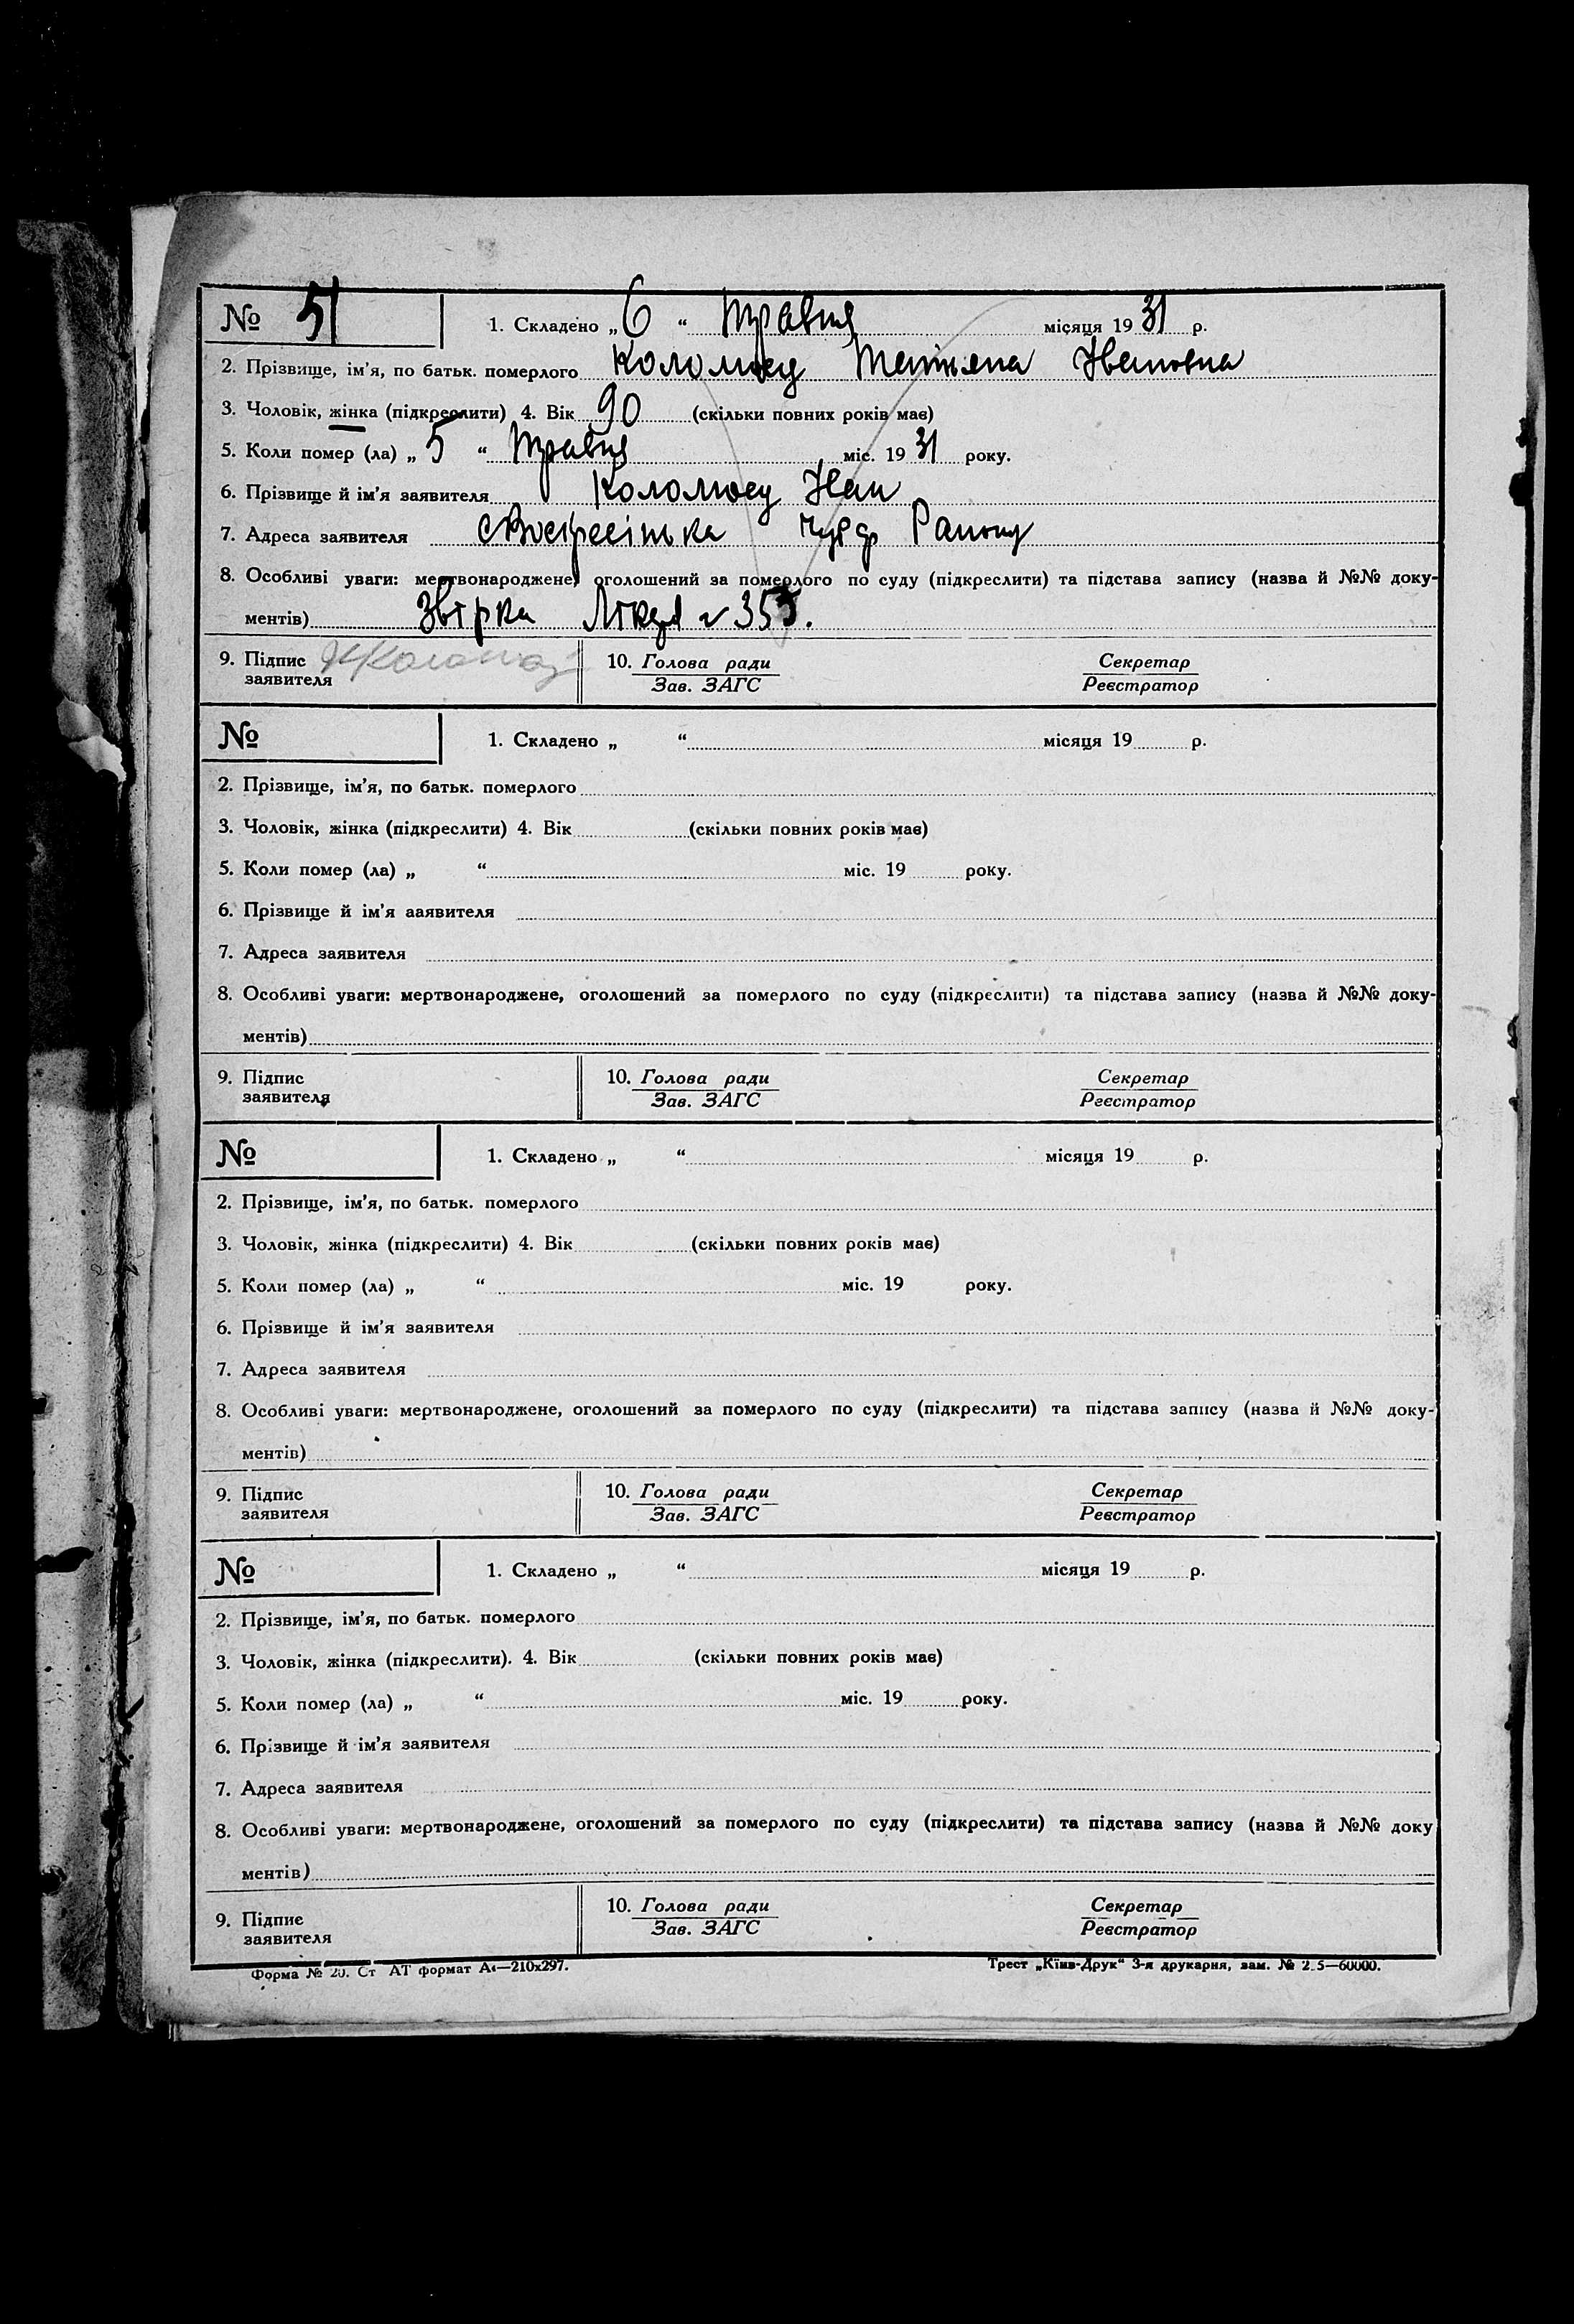 № 51 1. Складено „ 6 “ Травня місяця 19 31 р.
2. Прізвище, ім’я, по батьк. померлого Коломоец Татьяна Ивановна
3. Чоловік, жінка (підкреслити) 4. Вік 90 (скільки повних років має)
5. Коли помер (ла) „ 5 “ Травня міс. 19 31 року.
6. Прізвище й ім’я заявителя Коломоец Иван
7. Адреса заявителя
8. Особливі уваги: мертвонароджене, оголошений за померлого по суду (підкреслити) та підстава запису (назва й №№ доку-
ментів)
9. Підпис 10. Голова ради Секретар
заявителя Зав. ЗАГС Реєстратор
№ 1. Складено „ “ місяця 19 р.
2. Прізвище, ім’я, по батьк. померлого
3. Чоловік, жінка (підкреслити) 4. Вік (скільки повних років має)
5. Коли помер (ла) „ “ міс. 19 року.
6. Прізвище й ім’яааявителя
7. Адреса заявителя
8. Особливі уваги: мертвонароджене, оголошений за померлого по суду (підкреслити) та підстава запису (назва й №№ доку-
ментів)
9. Підпис 10. Голова ради Секретар
заявителя Зав. ЗАГС Реєстратор
№ 1. Складено „ “ місяця 19 р.
2. Прізвище, ім’я, по батьк. померлого
3. Чоловік, жінка (підкреслити) 4. Вік (скільки повних років має)
5. Коли помер (ла) „ “ міс. 19 року.
6. Прізвище й ім’я заявителя
7. Адреса заявителя
8. Особливі уваги: мертвонароджене, оголошений за померлого по суду (підкреслити) та підстава запису (назва й №№ доку-
ментів)
9. Підпис 10. Голова ради Секретар
заявителя Зав. ЗАГС Реєстратор
№ 1. Складено „ “ місяця 19 р.
2. Прізвище, ім’я, по батьк. померлого
3. Чоловік, жінка (підкреслити). 4. Вік (скільки повних років має)
5. Коли помер (ла) „ “ міс. 19 року.
6. Прізвище й ім’я заявителя
7. Адреса заявителя
8. Особливі уваги: мертвонароджене, оголошений за померлого по суду (підкреслити) та підстава запису (назва й №№ доку
ментів)
9. Підпис 10. Голова ради Секретар
заявителя Зав. ЗАГС Реєстратор
Форма № 20. Ст АТ формат А4—210x297. Трест „Київ-Друк“ 3-я друкарня, зам. №